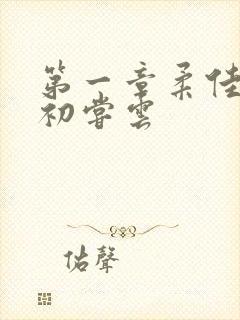 第一章柔佳
初嘗雲
佑聲